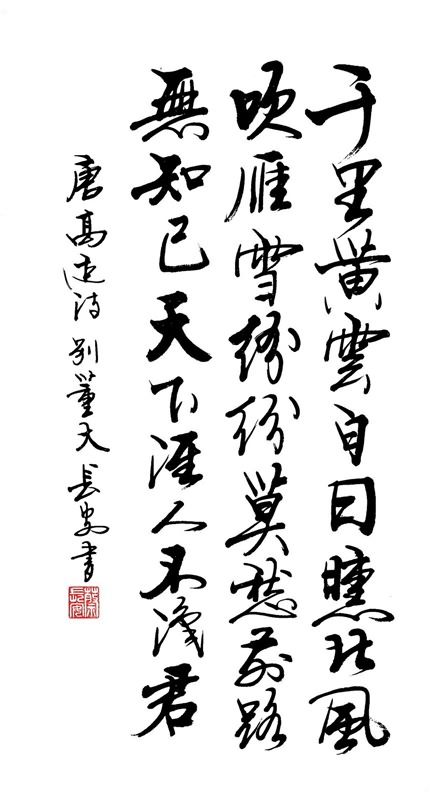 千里黄雲白日曛北風
吹雁雪紛紛莫愁前路
無知己天下誰人不識君
唐高適詩別董大長安書